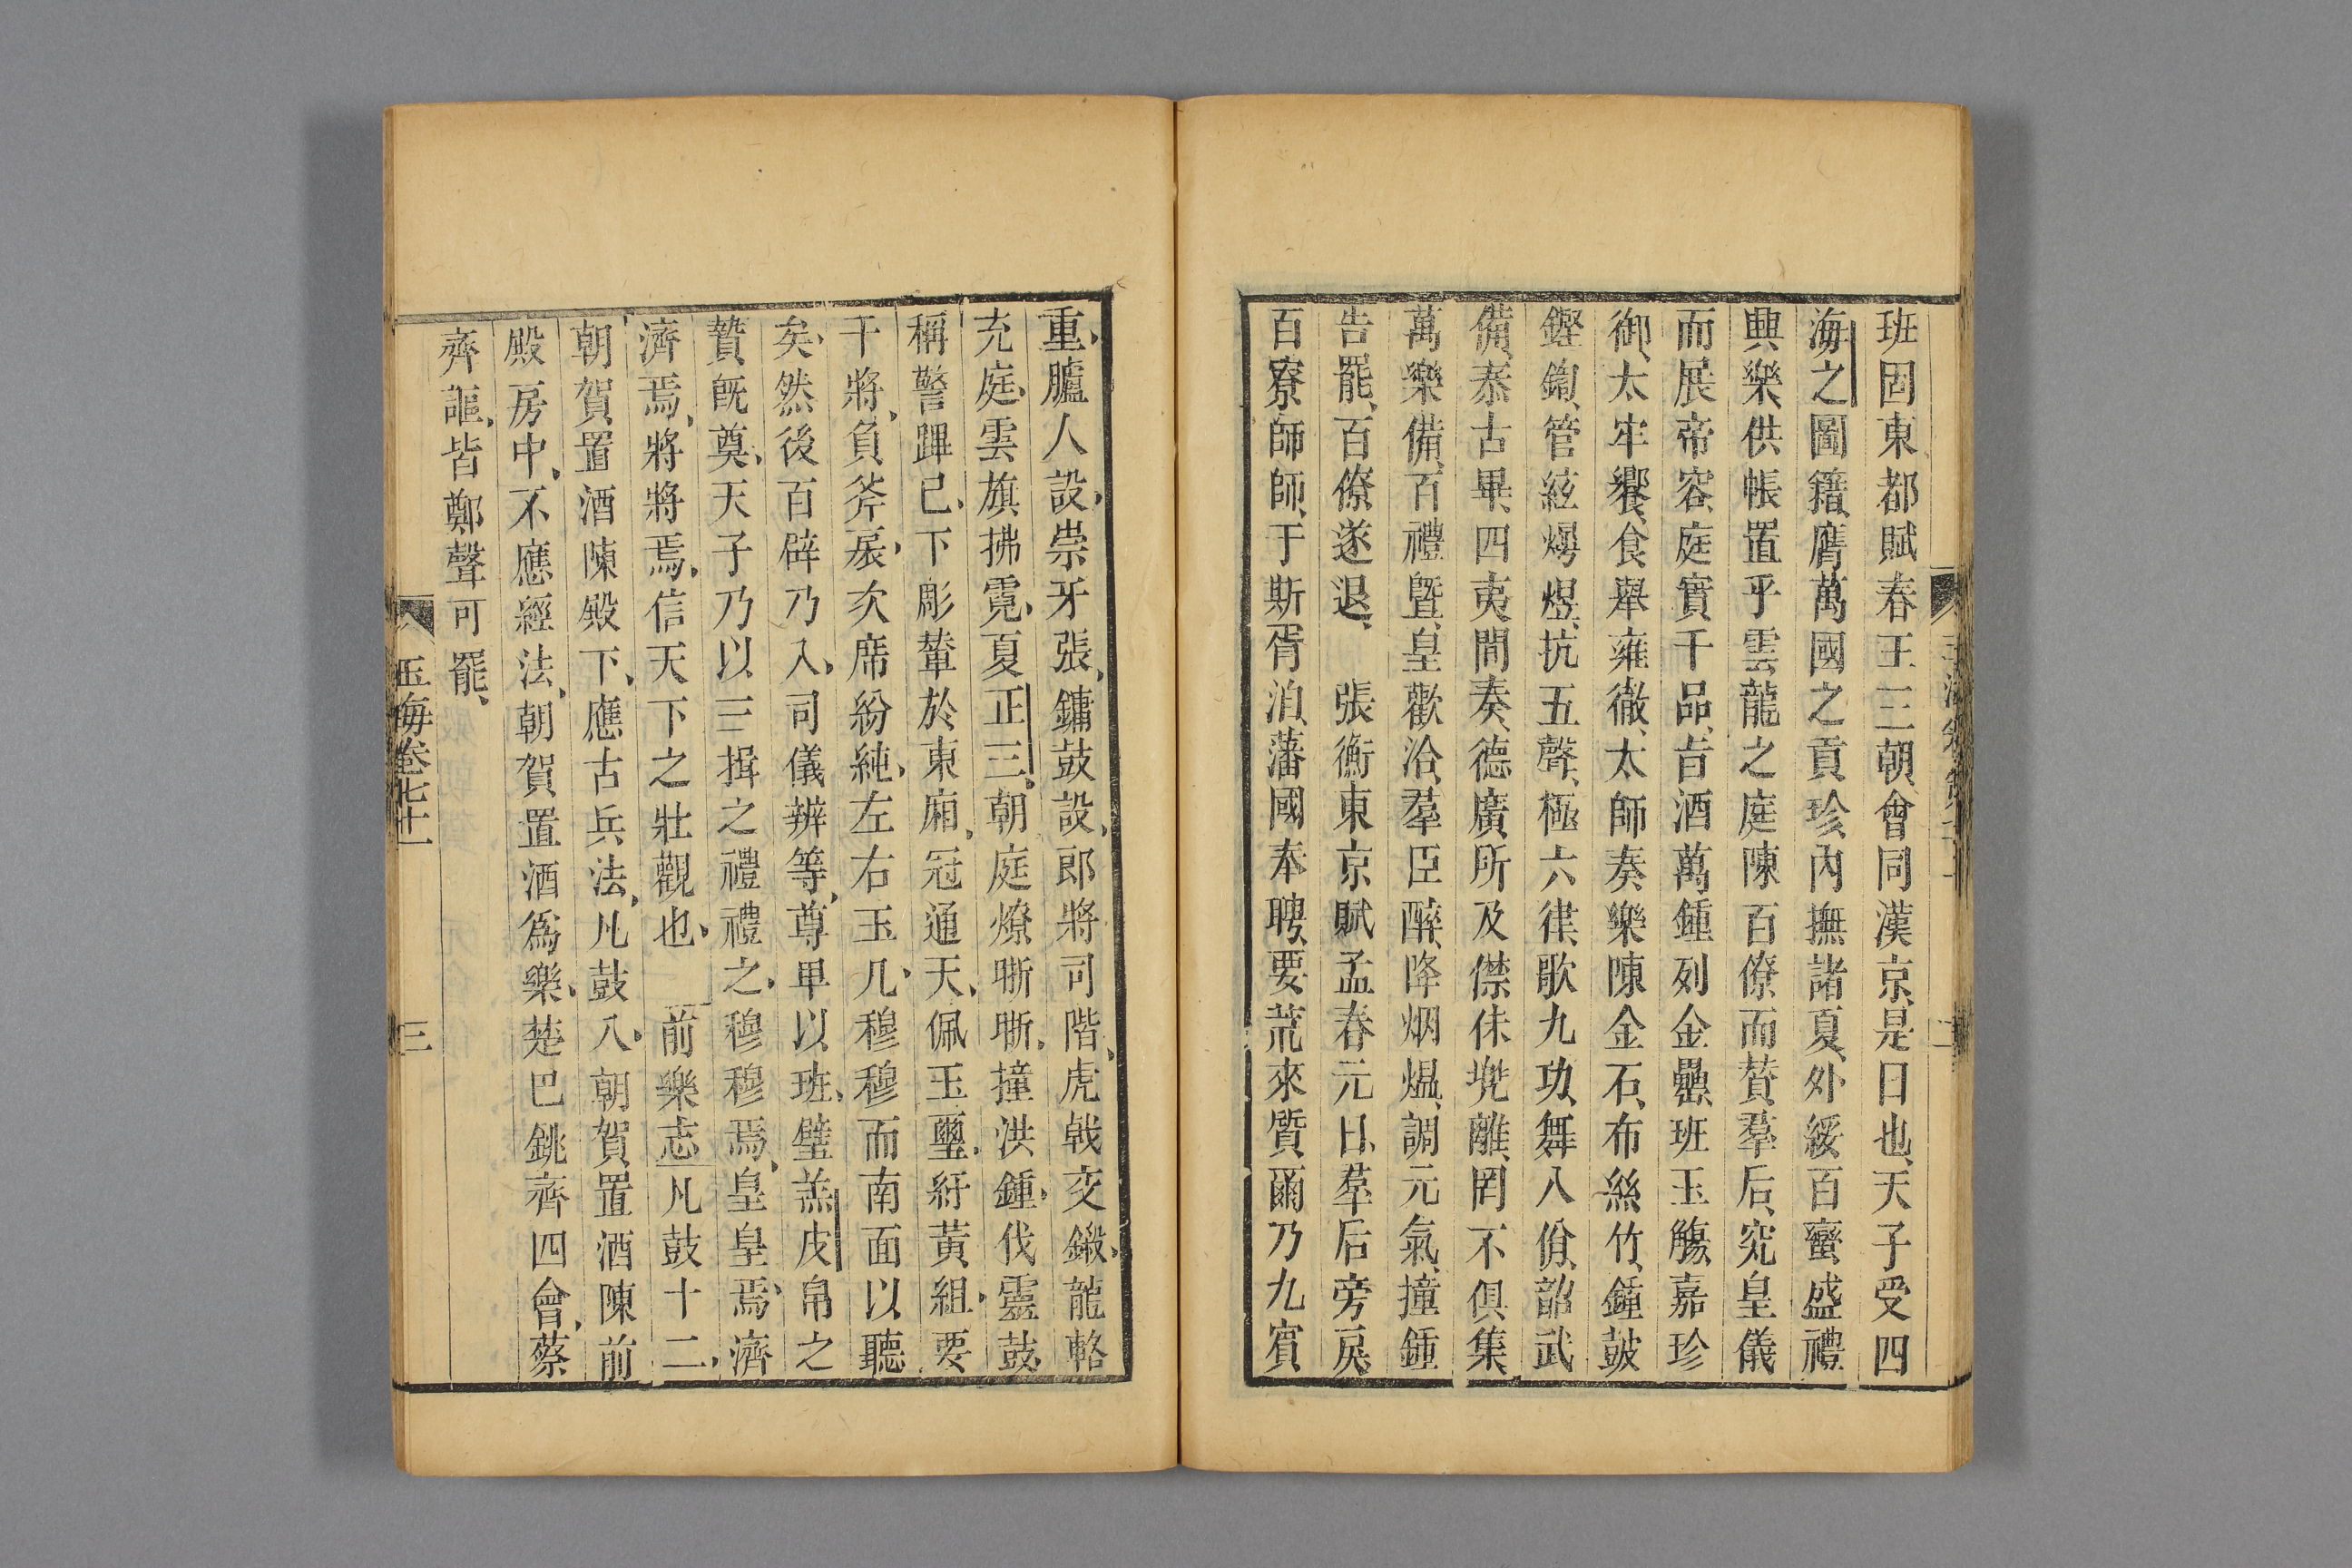 班固東都賦春王三朝會同漢京是日也天子受四
海之圖籍膺萬國之貢珍內撫諸夏外綏百蠻盛禮
興樂供帳置乎雲龍之庭陳百僚而贊羣后究皇儀
而展帝容庭實千品旨酒萬鍾列金罍班玉觴嘉珍
御太牢饗食舉雍徹太師奏樂陳金石布絲竹鍾鼓
鏗鍧管絃燁煜抗五聲極六律歌九功舞八佾韶武
備泰古畢四夷間奏德廣所及傑侏兜離罔不俱集
萬樂備百禮曁皇歡洽羣臣醉降烟熅調元氣撞鍾
告罷百僚遂退　張衡東京賦孟春元日羣后旁戾
百寮師師于斯胥洎藩國奉聘要荒來質爾乃九賓
重臚人設崇牙張鏞鼓設郎將司階虎戟交鎩龍輅
充庭雲旗拂霓夏正三朝庭燎晣晣撞洪鍾伐靈鼓
稱警蹕已下彫輦於東廂冠通天佩玉璽紆黃組要
干將負斧扆次席紛純左右玉几穆穆而南面以聽
矣然後百辟乃入司儀辨等尊卑以班璧羔皮帛之
贄旣奠天子乃以三揖之禮禮之穆穆焉皇皇焉濟
濟焉將將焉信天下之壯觀也　前樂志凡鼓十二
朝賀置酒陳殿下應古兵法凡鼓八朝賀置酒陳前
殿房中不應經法朝賀置酒爲樂楚巴銚齊四會蔡
齊謳皆鄭聲可罷
玉海卷七十一
三